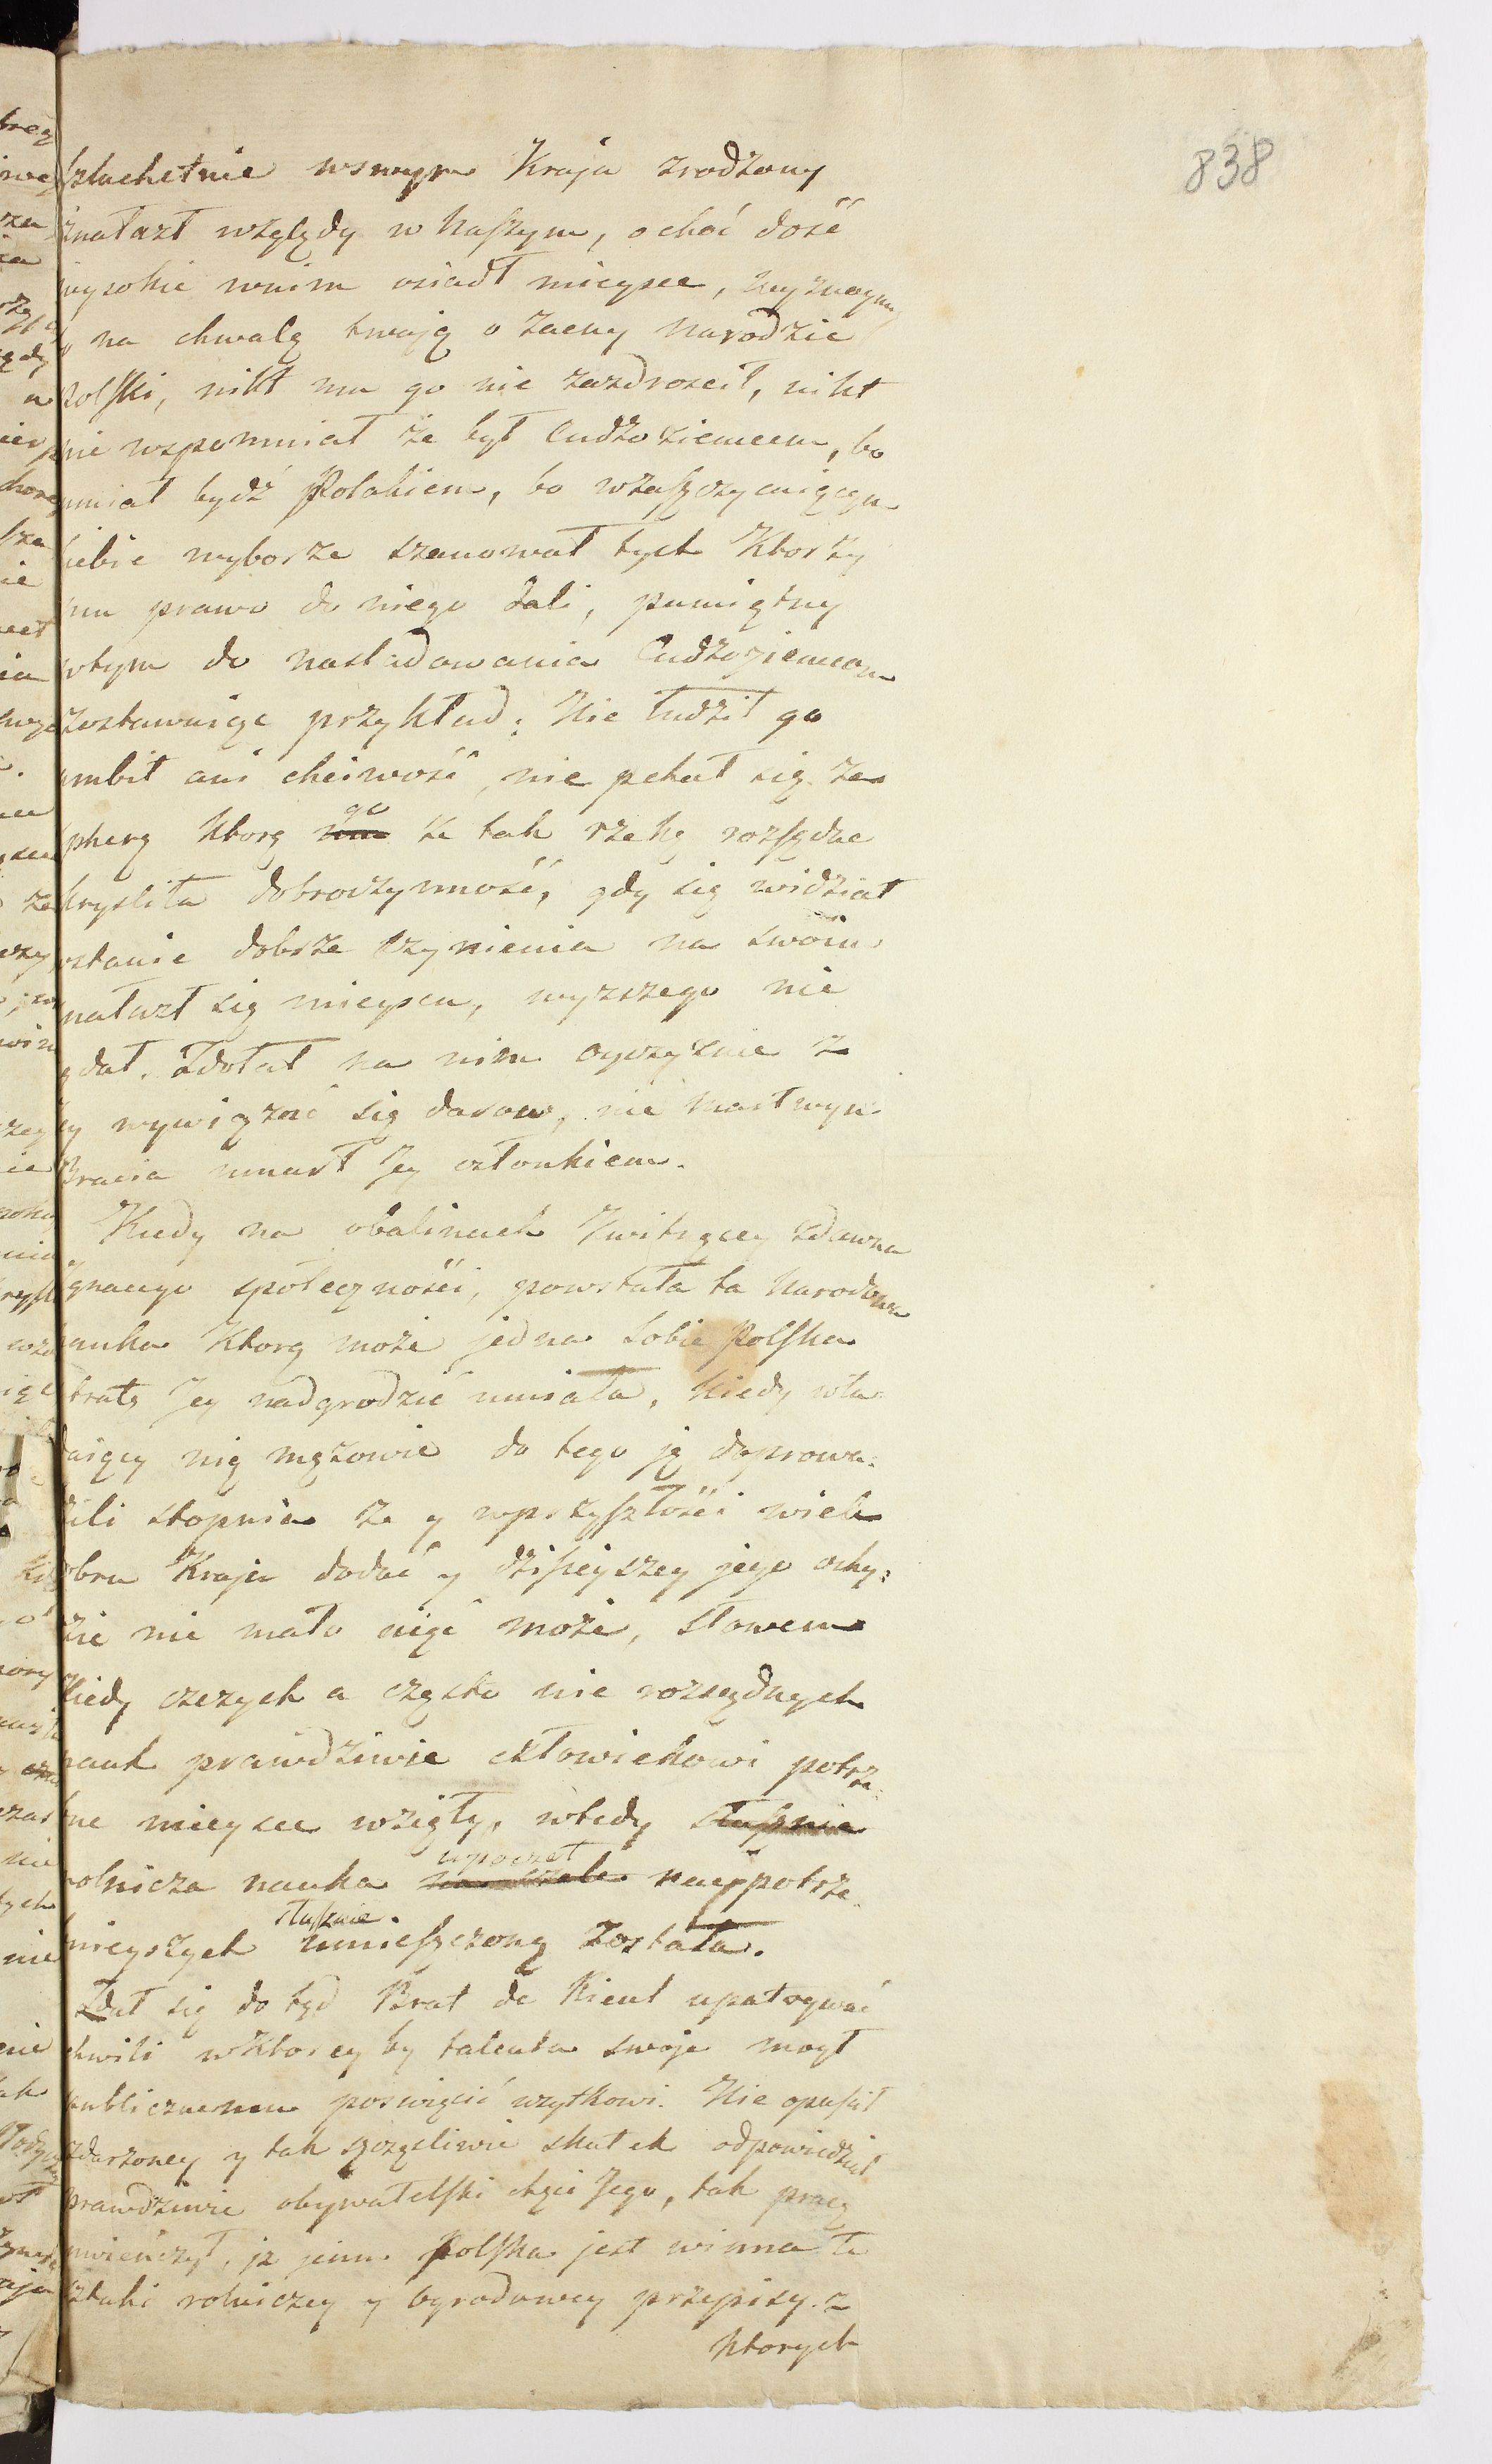 838
szlachetnie wswym Kraju zrodzony
znalazł względy w naszym, o choć dość
wysokie wnim osiadł mieysce, wyznaymy
na chwałę twoją o zacny narodzie
Polski, nikt mu go nie zazdrościł, nikt
nie wspomniał że był Cudzoziemcem, bo
umiał bydź Polakiem, bo wzaszczycaiącym
siebie wyborze szanował tych Ktorzy
mu prawo do niego dali, pamiętny
wtym do nasladowania Cudzoziemcom
zostawuiąc przykład; Nie łudził go
ambit ani chciwość, nie pchał się za
spherę ktorą go że tak rzekę rozsądna
kryśliła dobroczynność, gdy się widział
wstanie dobrze czynienia na swoim
nalazł się mieyscu, wyższego nie
ądał. Zdołał na nim oyczyznie z
ey wywiązać się darow, nie martwym
Bracia umarł Jey członkiem.
Kiedy na obalinach Kwitnącey zdawna
społeczności, powstała ta Narodowa
nauka Ktorą może jedna sobie Polska
stratę Jey nadgrodzić umiała, kiedy wła:
daiący nią mężowie do tego ją doprowa:
dzili stopnia że y wprzyszłości wiele
obru Kraju dodać y dzisieyszey jego ochy:
zie nie mało uiąć może, słowem
Kiedy czczych a często nie rozsądnych
nauk prawdziwie człowiekowi potrze:
bne mieysce wzięły, wtedy słusznie
rolnicza nauka na czele wpoczet naypotrze:
bnieyszych słusznie umieszczoną została.
Zdał się do tąd Brat de Rieul upatrywać
chwili wKtorey by talenta swoje mogł
publicznemu poswięcić użytkowi. Nie opuścił
zdarzoney y tak szczęsliwie skutek odpowiedział
prawdziwie obywatelski chęci Jego, tak pracę
uwieńczył, iż jemu Polska jest winna te
sztuki rolniczey y ogrodowey przepisy. z
ktorych